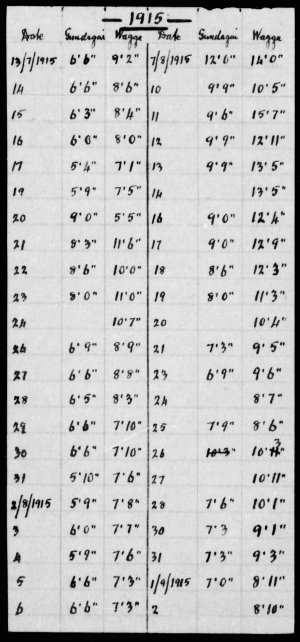 1915
Date Gundagai Wagga Date Gundagai Wagga
13/7/1915 6'6" 9'2" 7/8/1915 12'6" 14'0"
14 6'6" 8'6" 10 9'9" 10'5"
15 6'3" 8'4" 11 9'6" 15'7"
16 6'0" 8'0" 12 9'9" 12'11"
17 5'4" 7'1" 13 9'9" 13'5"
19 5'9" 7'5" 14 13'5"
20 9'0" 5'5" 16 9'0" 12'4"
21 8'3" 11'6" 17 9'0" 12'9"
22 8'6" 10'0" 18 8'6" 12'3"
23 8'0" 11'0" 19 8'0" 11'3"
24 10'7" 20 10'4"
26 6'9" 8'9" 21 7'3" 9'5"
27 6'6" 8'8" 23 6'9" 9'6"
28 6'5" 8'3" 24 8'7"
29 6'6" 7'10" 25 7'9" 8'6"
30 6'6" 7'10" 26 10'3"
31 5'10" 7'6" 27 10'11"
2/8/1915 5'9" 7'8" 28 7'6" 10'1"
3 6'0" 7'7" 30 7'3 9'1"
4 5'9" 7'6" 31 7'3" 9'3"
5 6'6" 7'3" 1/9/1915 7'0" 8'11"
6 6'6" 7'3" 2 8'10"